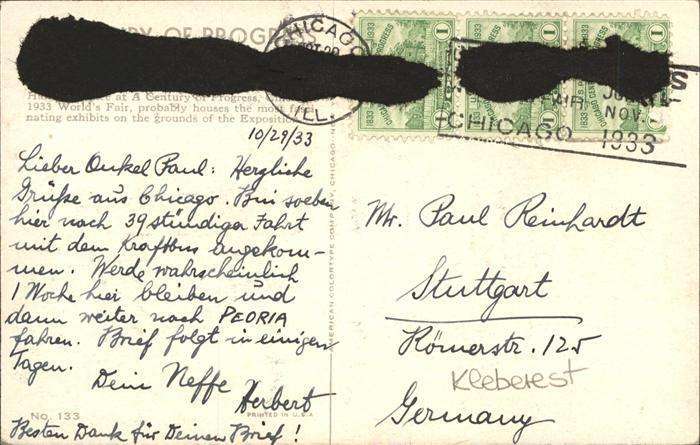 CHICAGO
ILL.
at A Century of Progress,
1933 World's Fair, probably houses the most
nating exhibits on the grounds of the Exposition
10/29/33
Lieber Onkel Paul: Herzliche
Grüße aus Chicago. Bin soeben
hier nach 39 stündiger Fahrt
mit dem Kraftbus angekom-
men. Werde wahrscheinlich
1 Woche hier bleiben und
dann weiter nach PEORIA
fahren. Brief folgt in einigen
Tagen.
Dein Neffe
Herbert
No. 133
PRINTED IN U.S.A
Besten Dank für Deinen Brief!
AMERICAN COLORTYPE COMPANY, CHICAGO
1 1 1
NOV.
CHICAGO 1933
Mr. Paul Reinhardt
Stuttgart
Römerstr. 125
Kleberest
Germany